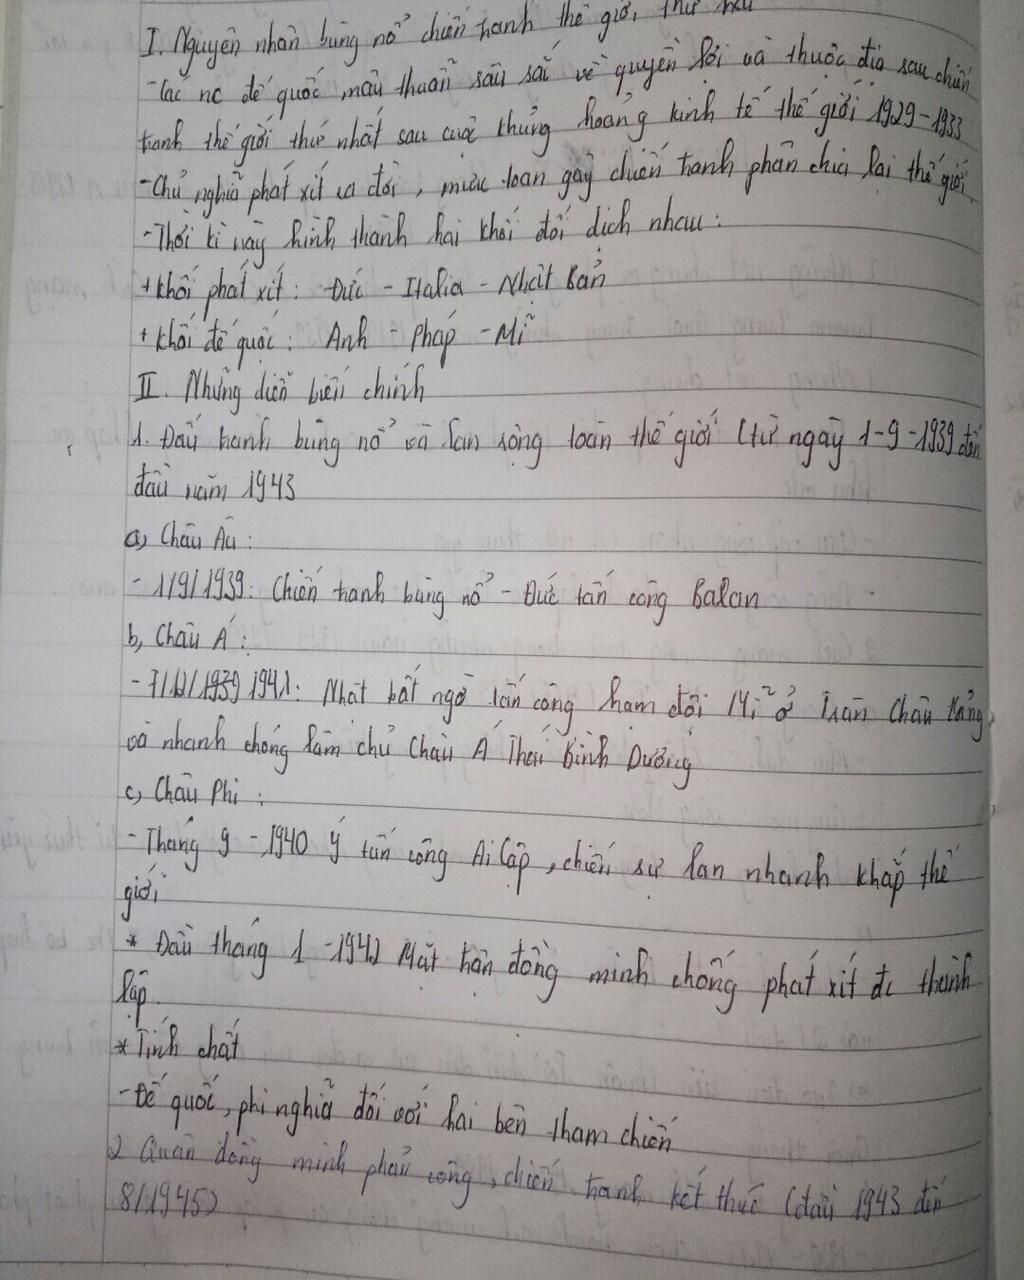 I. Nguyên nhân bùng nổ chiến tranh thế giới thứ hai
-Các nc đế quốc mâu thuẫn sâu sắc về quyền lợi và thuộc địa sau chiến
tranh thế giới thứ nhất sau cuộc khủng hoảng kinh tế thế giới 1929-1933
-Chủ nghĩa phát xít ra đời, mưu toan gây chiến tranh phân chia lại thế giới
-Thời kì này hình thành hai khối đối địch nhau:
+Khối phát xít: Đức - Italia - Nhật Bản
+ Khối đế quốc: Anh - Pháp - Mĩ
II. Những diễn biến chính
1. Đấu tranh bùng nổ và lan rộng toàn thế giới (từ ngày 1-9-1939 đến
đầu năm 1943
a, Châu Âu:
- 1/9/1939: Chiến tranh bùng nổ - Đức tấn công Balan
b, Châu Á:
- 7/12/1939 1941: Nhật bất ngờ tấn công hạm đội Mĩ ở Trân Châu Cảng,
và nhanh chóng làm chủ Châu Á Thái Bình Dương
c, Châu Phi:
- Tháng 9-1940 Ý tấn công Ai Cập, chiến sự lan nhanh khắp thế
giới
* Đầu tháng 1-1942 Mặt trận đồng minh chống phát xít đc thành
lập.
* Tính chất
-Đế quốc, phi nghĩa đối với hai bên tham chiến
2 Quân đồng minh phản công, chiến tranh kết thúc (đầu 1943 đến
8/1945)